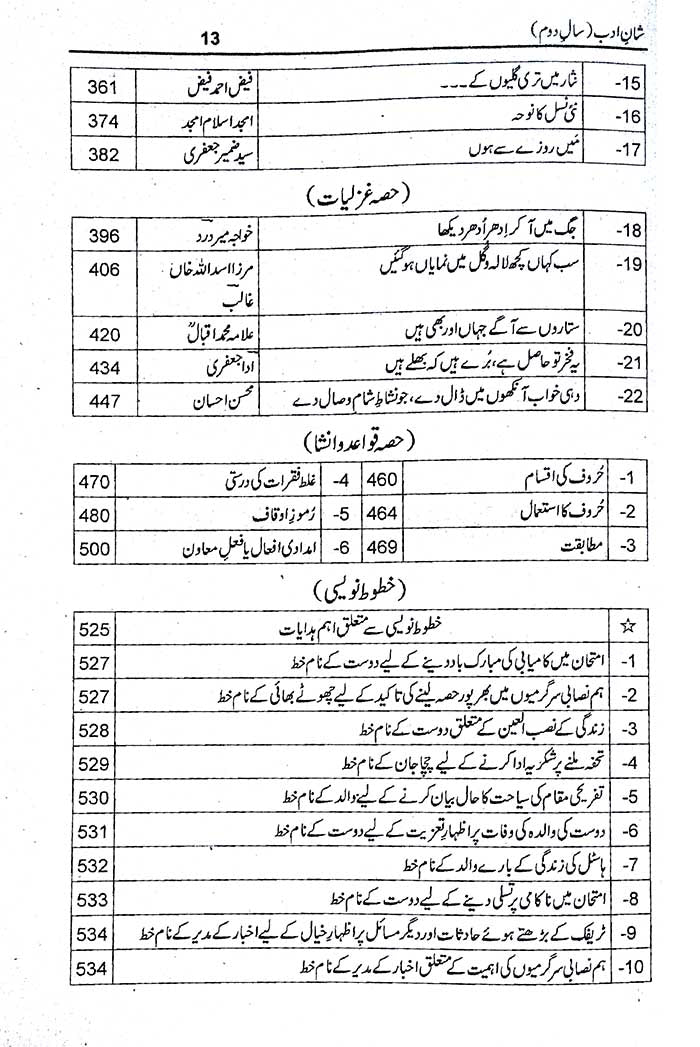 شانِ ادب (سالِ دوم) 13
-15 نثار میں تری گلیوں کے۔۔۔ فیض احمد فیض 361
-16 نئی نسل کا نوحہ امجد اسلام امجد 374
-17 مَیں روزے سے ہوں سید ضمیر جعفری 382
(حصہ غزلیات)
-18 جگ میں آ کر اِدھر اُدھر دیکھا خواجہ میر درد 396
-19 سب کہاں کچھ لالہ و گل میں نمایاں ہو گئیں مرزا اسد اللہ خاں 406
غالب
-20 ستاروں سے آگے جہاں اور بھی ہیں علامہ محمد اقبالؒ 420
-21 یہ فخر تو حاصل ہے، بُرے ہیں کہ بھلے ہیں ادا جعفری 434
-22 وہی خواب آنکھوں میں ڈال دے، جو نشاطِ شام وصال دے محسن احسان 447
(حصہ قواعد و انشا)
-1 حُروف کی اقسام 460 -4 غلط فقرات کی درستی 470
-2 حُروف کا استعمال 464 -5 رُموزِ اوقاف 480
-3 مطابقت 469 -6 امدادی افعال یا فعلِ معاون 500
(خطوط نویسی)
☆ خطوط نویسی سے متعلق اہم ہدایات 525
-1 امتحان میں کامیابی کی مبارک باد دینے کے لیے دوست کے نام خط 527
-2 ہم نصابی سرگرمیوں میں بھرپور حصہ لینے کی تاکید کے لیے چھوٹے بھائی کے نام خط 527
-3 زندگی کے نصب العین کے متعلق دوست کے نام خط 528
-4 تحفہ ملنے پر شکریہ ادا کرنے کے لیے چچا جان کے نام خط 529
-5 تفریحی مقام کی سیاحت کا حال بیان کرنے کے لیے والد کے نام خط 530
-6 دوست کی والدہ کی وفات پر اظہارِ تعزیت کے لیے دوست کے نام خط 531
-7 ہاسٹل کی زندگی کے بارے والد کے نام خط 532
-8 امتحان میں ناکامی پر تسلی دینے کے لیے دوست کے نام خط 533
-9 ٹریفک کے بڑھتے ہوئے حادثات اور دیگر مسائل پر اظہارِ خیال کے لیے اخبار کے مدیر کے نام خط 534
-10 ہم نصابی سرگرمیوں کی اہمیت کے متعلق اخبار کے مدیر کے نام خط 534